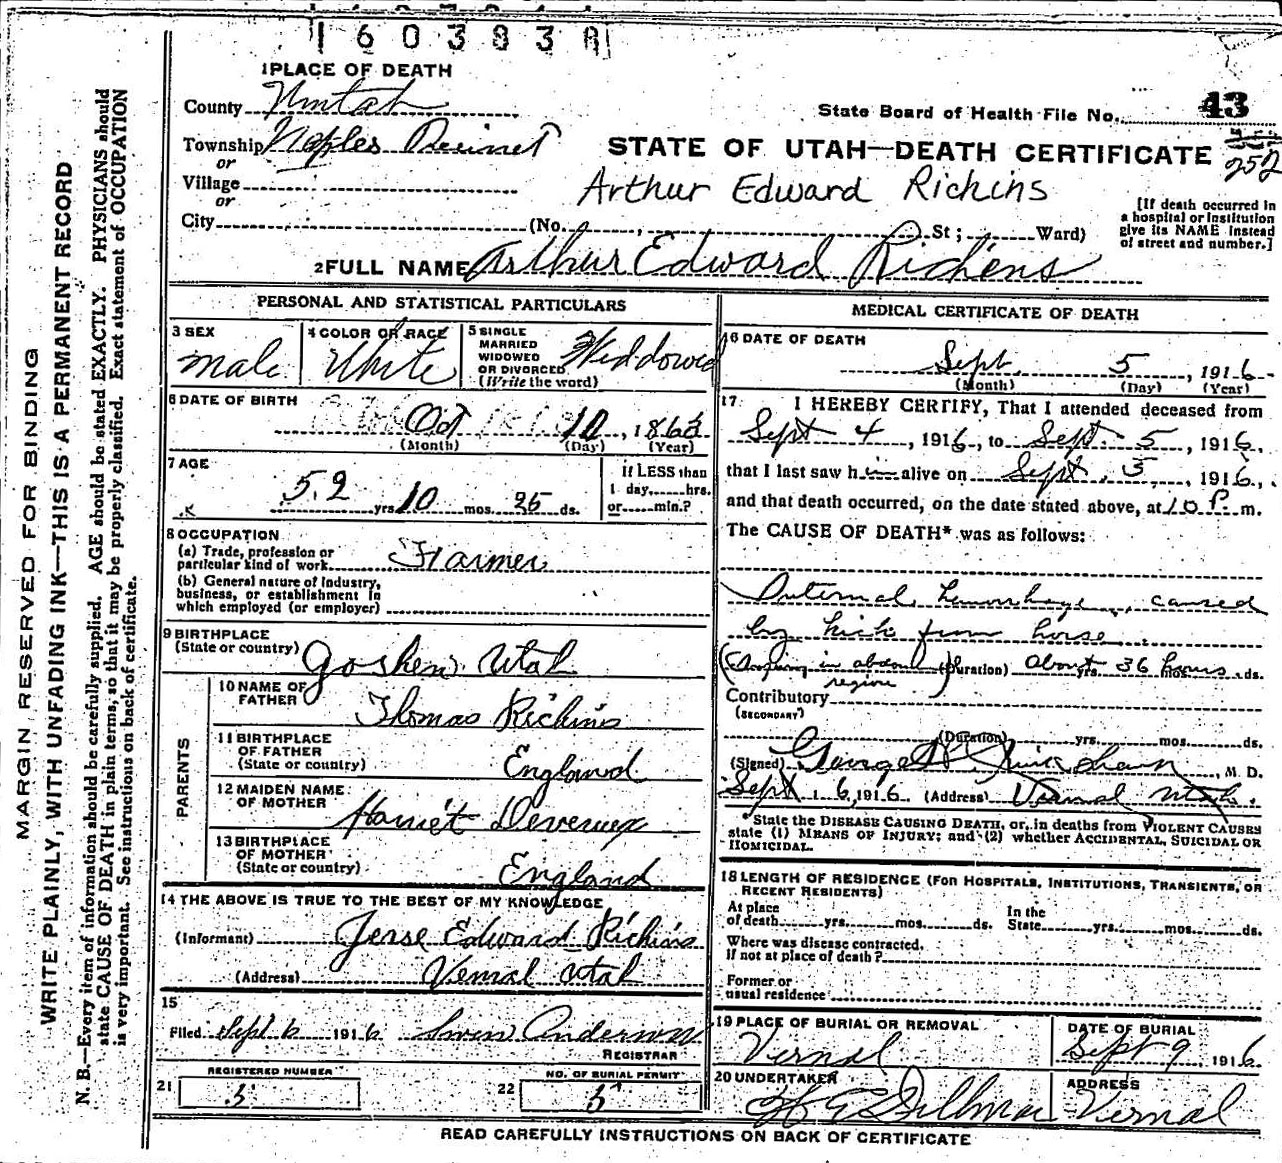 MARGIN RESERVED FOR BINDING
WRITE PLAINLY, WITH UNFADING INK—THIS IS A PERMANENT RECORD
N. B.—Every item of information should be carefully supplied. AGE should be stated EXACTLY. PHYSICIANS should
state CAUSE OF DEATH in plain terms, so that it may be properly classified. Exact statement of OCCUPATION
is very important. See instructions on back of certificate.
1 PLACE OF DEATH
County Uintah
State Board of Health File No. 43
Township Naples Precinct
STATE OF UTAH—DEATH CERTIFICATE
252
or
Village
Arthur Edward Richins
or
City (No. , St ; Ward)
[If death occurred in
a hospital or institution
give its NAME instead
of street and number.]
2 FULL NAME Arthur Edward Richens
PERSONAL AND STATISTICAL PARTICULARS
3 SEX
male
4 COLOR OR RACE
White
5 SINGLE
MARRIED
WIDOWED
OR DIVORCED
(Write the word)
Widdowed
6 DATE OF BIRTH
Oct 10, 1863
(Month) (Day) (Year)
7 AGE
52 yrs 10 mos. 25 ds.
If LESS than
1 day, hrs.
or min.?
8 OCCUPATION
(a) Trade, profession or
particular kind of work Farmer
(b) General nature of Industry,
business, or establishment in
which employed (or employer)
9 BIRTHPLACE
(State or country) Goshen Utah
PARENTS
10 NAME OF
FATHER
Thomas Richins
11 BIRTHPLACE
OF FATHER
(State or country)
England
12 MAIDEN NAME
OF MOTHER
Harriet Devereux
13 BIRTHPLACE
OF MOTHER
(State or country)
England
14 THE ABOVE IS TRUE TO THE BEST OF MY KNOWLEDGE
(Informant) Jesse Edward Richins
(Address) Vernal Utah
15
Filed Sept 6 1916 Swen Anderson
REGISTRAR
21
REGISTERED NUMBER
5
22
NO. OF BURIAL PERMIT
5
MEDICAL CERTIFICATE OF DEATH
16 DATE OF DEATH
Sept. 5, 1916
(Month) (Day) (Year)
17 I HEREBY CERTIFY, That I attended deceased from
Sept 4, 1916, to Sept. 5, 1916,
that I last saw him alive on Sept. 5, 1916,
and that death occurred, on the date stated above, at 10 P. m.
The CAUSE OF DEATH* was as follows:
Internal hemorrhage, caused
by kick from horse.
in region (Duration) about 36 hours yrs. mos. ds.
Contributory
(SECONDARY)
(Duration) yrs. mos. ds.
(Signed) George , M. D.
Sept. 6, 1916 (Address) Vernal Utah.
* State the DISEASE CAUSING DEATH, or, in deaths from VIOLENT CAUSES
state (1) MEANS OF INJURY; and (2) whether ACCIDENTAL, SUICIDAL OR
HOMICIDAL.
18 LENGTH OF RESIDENCE (FOR HOSPITALS, INSTITUTIONS, TRANSIENTS, OR
RECENT RESIDENTS)
At place
of death yrs. mos. ds.
In the
State yrs. mos. ds.
Where was disease contracted.
If not at place of death?
Former or
usual residence
19 PLACE OF BURIAL OR REMOVAL
Vernal
DATE OF BURIAL
Sept 9, 1916
20 UNDERTAKER
Dillman
ADDRESS
Vernal
READ CAREFULLY INSTRUCTIONS ON BACK OF CERTIFICATE